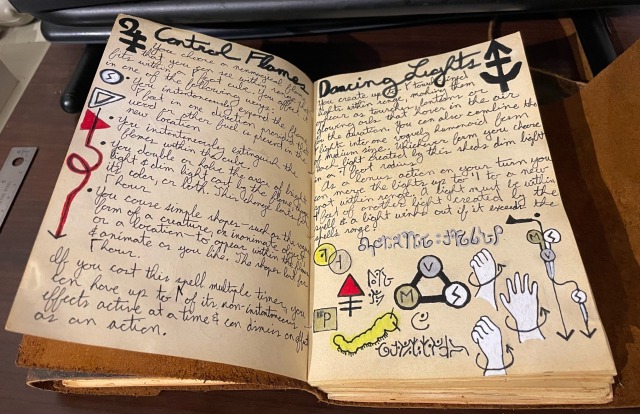 Control Flames
You choose an nonmagical flame
that you can see within range & that
fits within a 5 foot cube. You affect it
in one of the following ways:
You instantaneously expand the flame
5 feet in one direction, provided that
wood or other fuel is present in the
new location.
You instantaneously extinguish the
flames within the cube.
You double or halve the area of bright
light & dim light cast by the flame, change
its color, or both. This change lasts for
1 hour.
You cause simple shapes—such as the vague
form of a creature, an inanimate object,
or a location—to appear within the flames
& animate as you like. The shapes last for
1 hour.
If you cast this spell multiple times, you
can have up to 3 of its non-instantaneous
effects active at a time & can dismiss an effect
as an action.
Dancing Lights
You create up to 4 torch-sized
lights within range, making them
appear as torches, lanterns, or
glowing orbs that hover in the air
for the duration. You can also combine the 4
lights into one vaguely humanoid form
of medium size. Whichever form you choose,
each light created by this sheds dim light
in a foot radius.
As a bonus action on your turn you
can move the lights up to to a new
spot within range. A light must be within
feet of another light created by the
spell & a light winks out if it exceeds the
spells range.
V
M S
P